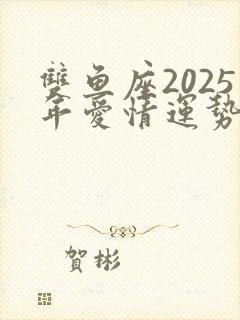 雙魚座2025
年愛情運勢
賀彬